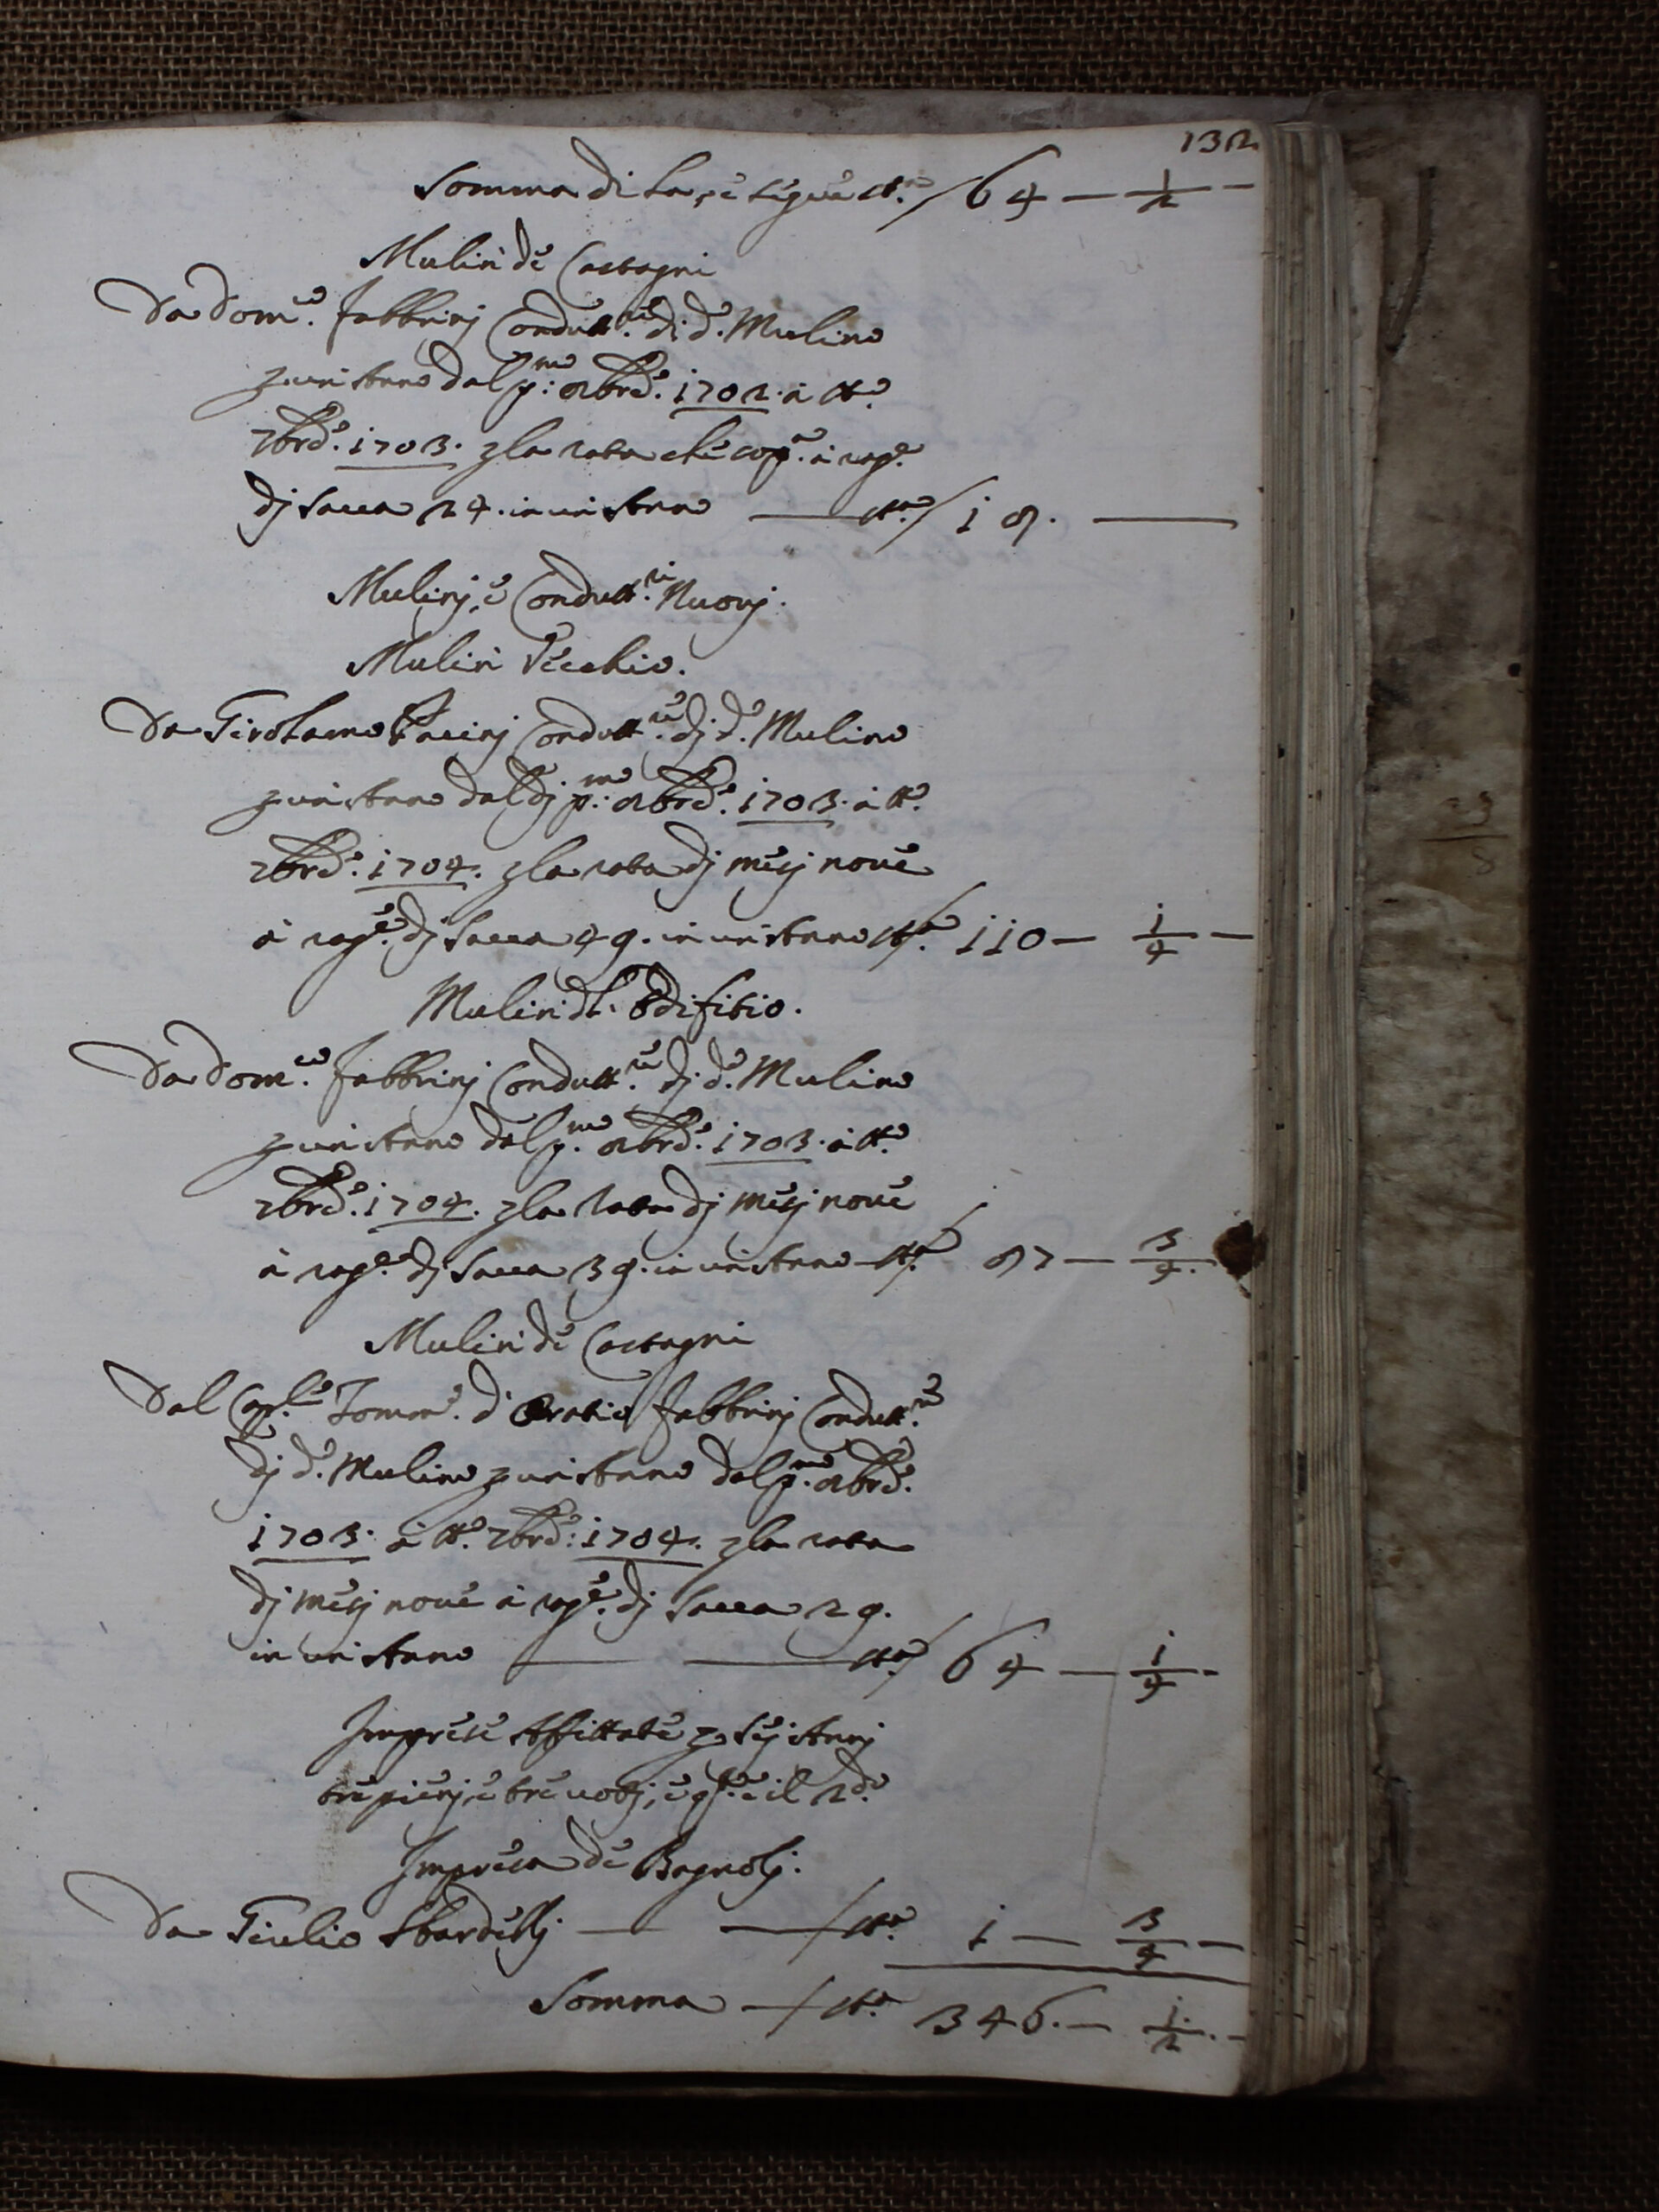 132
Somma di La, e segue st.a 64 — 1/2 —
Mulin de Castagni
Da Dom.co Fabbrinj Condutt.re di d.o Mulino
p un Anno dal p.mo 8bre. 1702. a tt.o
7bre. 1703. p la rata che cop.a a rag.e
dj Sacca 24. in un Anno — st.a 18. —
Mulinj, e Condutt.ri Nuovj.
Mulin Vecchio.
Da Girolamo Pacinj Condutt.re dj d.o Mulino
p un Anno dal dj p.mo 8bre. 1703. a tt.o
7bre. 1704. p la rata dj mesj nove
a rag.e dj Sacca 49. in un Anno st.a 110 — 1/4 —
Mulin dl. Edifitio.
Da Dom.co Fabbrinj Condutt.re dj d.o Mulino
p un Anno dal p.mo 8bre. 1703. a tt.o
7bre. 1704. p la rata dj mesj nove
a rag.e dj Sacca 39. in un Anno st.a 87 — 3/4.
Mulin de Castagni
Dal Cap.le Tomm.o d'Oratio Fabbrinj Condutt.re
dj d.o Mulino p un Anno dal p.mo 8bre.
1703. a tt.o 7bre. 1704. p la rata
dj mesj nove a rag.e dj Sacca 29.
in un Anno — st.a 64 — 1/4 -
Imprese Affittate p Sej Annj
tre pienj, e tre votj, e q.to e il 2.do
Impresa de Bagnolj.
Da Giulio Sbardellj — st.a 1 — 3/4 —
Somma — st.a 346. — 1/2. -